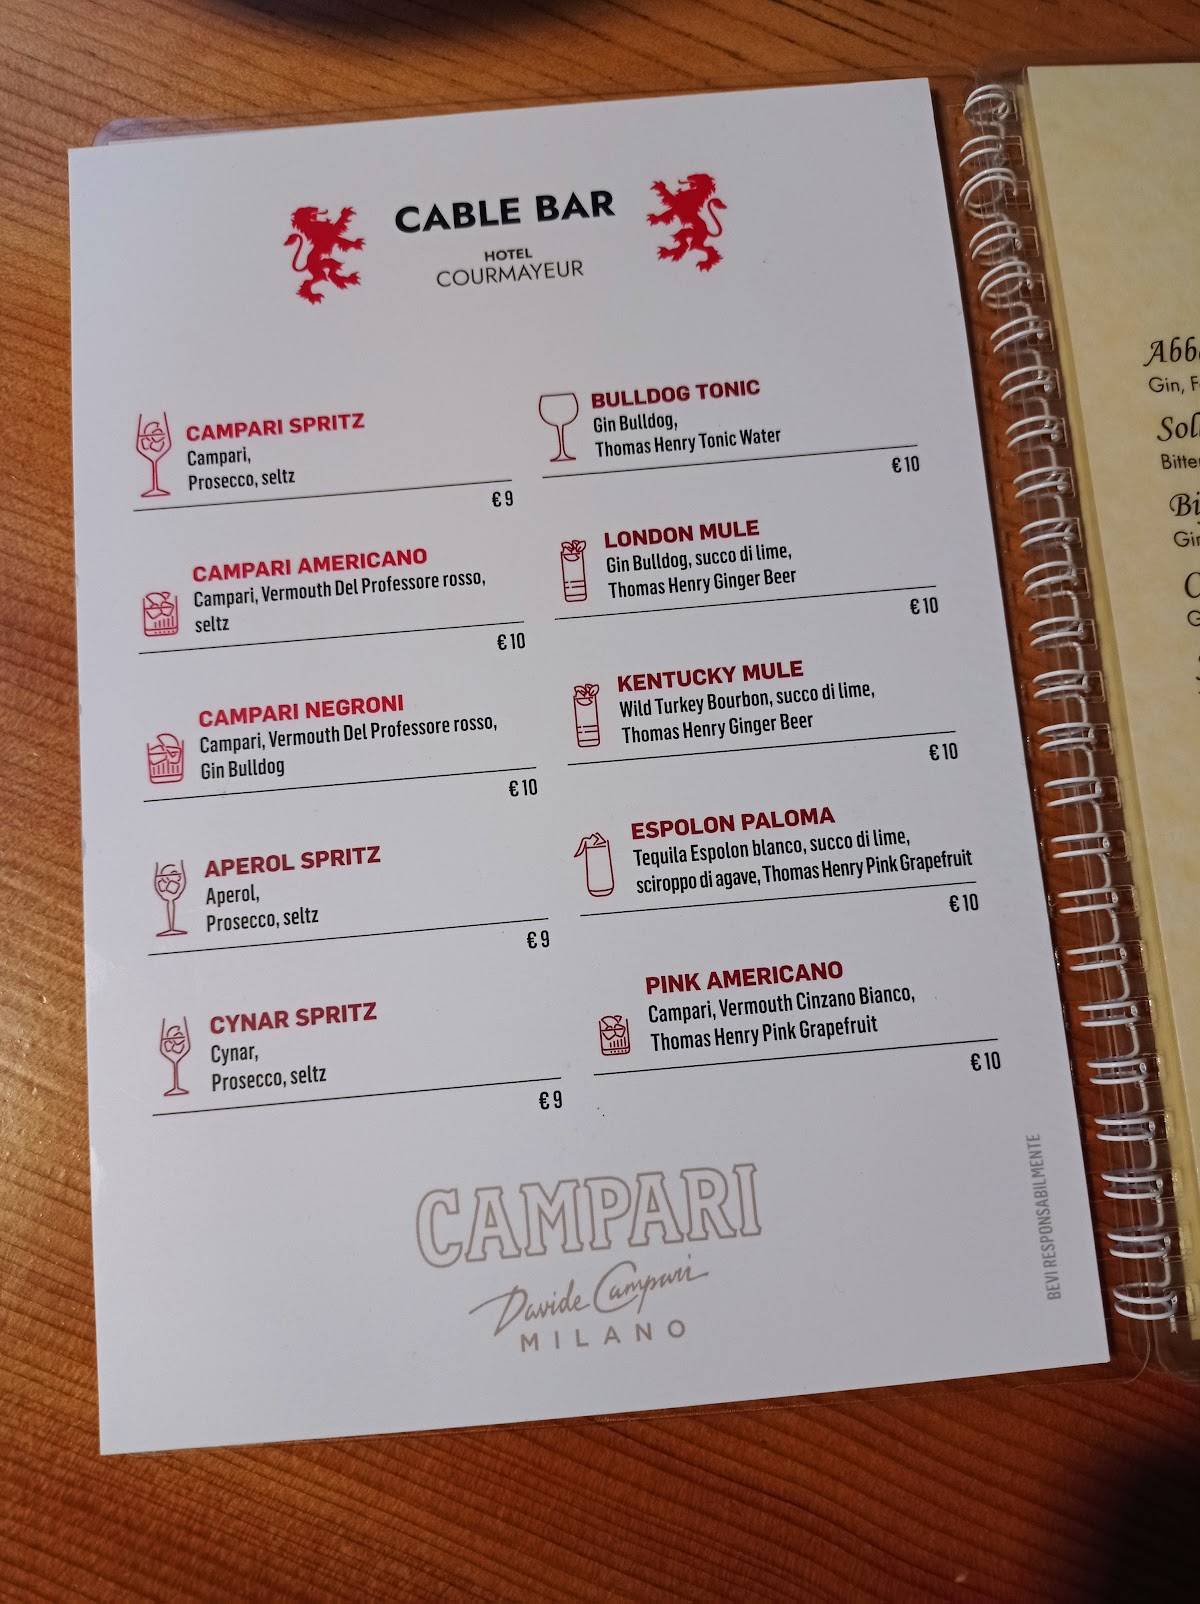 CABLE BAR
HOTEL
COURMAYEUR
CAMPARI SPRITZ
Campari,
Prosecco, seltz
€ 9
CAMPARI AMERICANO
Campari, Vermouth Del Professore rosso,
seltz
€ 10
CAMPARI NEGRONI
Campari, Vermouth Del Professore rosso,
Gin Bulldog
€ 10
APEROL SPRITZ
Aperol,
Prosecco, seltz
€ 9
CYNAR SPRITZ
Cynar,
Prosecco, seltz
€ 9
BULLDOG TONIC
Gin Bulldog,
Thomas Henry Tonic Water
€ 10
LONDON MULE
Gin Bulldog, succo di lime,
Thomas Henry Ginger Beer
€ 10
KENTUCKY MULE
Wild Turkey Bourbon, succo di lime,
Thomas Henry Ginger Beer
€ 10
ESPOLON PALOMA
Tequila Espolon blanco, succo di lime,
sciroppo di agave, Thomas Henry Pink Grapefruit
€ 10
PINK AMERICANO
Campari, Vermouth Cinzano Bianco,
Thomas Henry Pink Grapefruit
€ 10
CAMPARI
Davide Campari
MILANO
BEVI RESPONSABILMENTE
Gin,